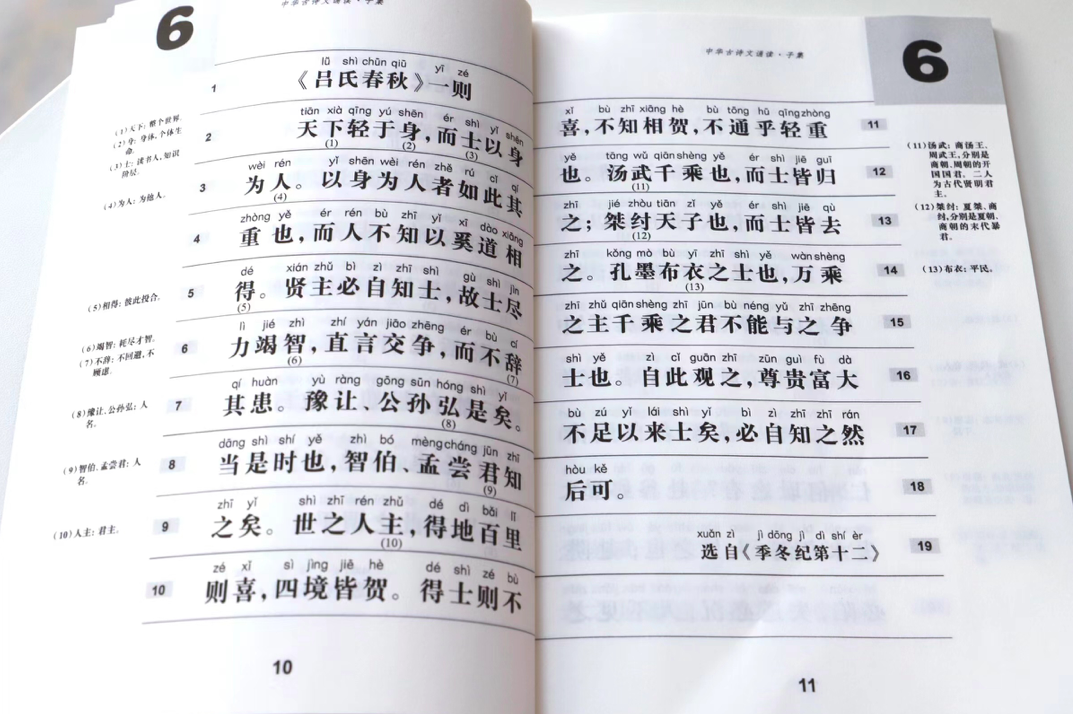 6
中华古诗文诵读·子集
lǚ shì chūn qiū yī zé
1 《吕氏春秋》一则
tiān xià qīng yú shēn ér shì yǐ shēn
2 天下轻于身，而士以身
(1) (2) (3)
wèi rén yǐ shēn wèi rén zhě rú cǐ qí
3 为人。以身为人者如此其
(4)
zhòng yě ér rén bù zhī yǐ xī dào xiāng
4 重也，而人不知以奚道相
dé xián zhǔ bì zì zhī shì gù shì jìn
5 得。贤主必自知士，故士尽
(5)
lì jié zhì zhí yán jiāo zhēng ér bù cí
6 力竭智，直言交争，而不辞
(6) (7)
qí huàn yù ràng gōng sūn hóng shì yǐ
7 其患。豫让、公孙弘是矣。
(8)
dāng shì shí yě zhì bó mèng cháng jūn zhī
8 当是时也，智伯、孟尝君知
(9)
zhī yǐ shì zhī rén zhǔ dé dì bǎi lǐ
9 之矣。世之人主，得地百里
(10)
zé xǐ sì jìng jiē hè dé shì zé bù
10 则喜，四境皆贺。得士则不
(1)天下：整个世界。
(2)身：身体，个体生
命。
(3)士：读书人，知识
阶层。
(4)为人：为他人。
(5)相得：彼此投合。
(6)竭智：耗尽才智。
(7)不辞：不回避，不
顾虑。
(8)豫让、公孙弘：人
名。
(9)智伯、孟尝君：人
名。
(10)人主：君主。
10
中华古诗文诵读·子集
6
xǐ bù zhī xiāng hè bù tōng hū qīng zhòng
喜，不知相贺，不通乎轻重 11
yě tāng wǔ qiān shèng yě ér shì jiē guī
也。汤武千乘也，而士皆归 12
(11)
zhī jié zhòu tiān zǐ yě ér shì jiē qù
之；桀纣天子也，而士皆去 13
(12)
zhī kǒng mò bù yī zhī shì yě wàn shèng
之。孔墨布衣之士也，万乘 14
(13)
zhī zhǔ qiān shèng zhī jūn bù néng yǔ zhī zhēng
之主千乘之君不能与之争 15
shì yě zì cǐ guān zhī zūn guì fù dà
士也。自此观之，尊贵富大 16
bù zú yǐ lái shì yǐ bì zì zhī zhī rán
不足以来士矣，必自知之然 17
hòu kě
后可。 18
xuǎn zì jì dōng jì dì shí èr
选自《季冬纪第十二》 19
(11)汤武：商汤王、
周武王，分别是
商朝、周朝的开
国国君，二人
为古代贤明君
主。
(12)桀纣：夏桀、商
纣，分别是夏朝、
商朝的末代暴
君。
(13)布衣：平民。
11